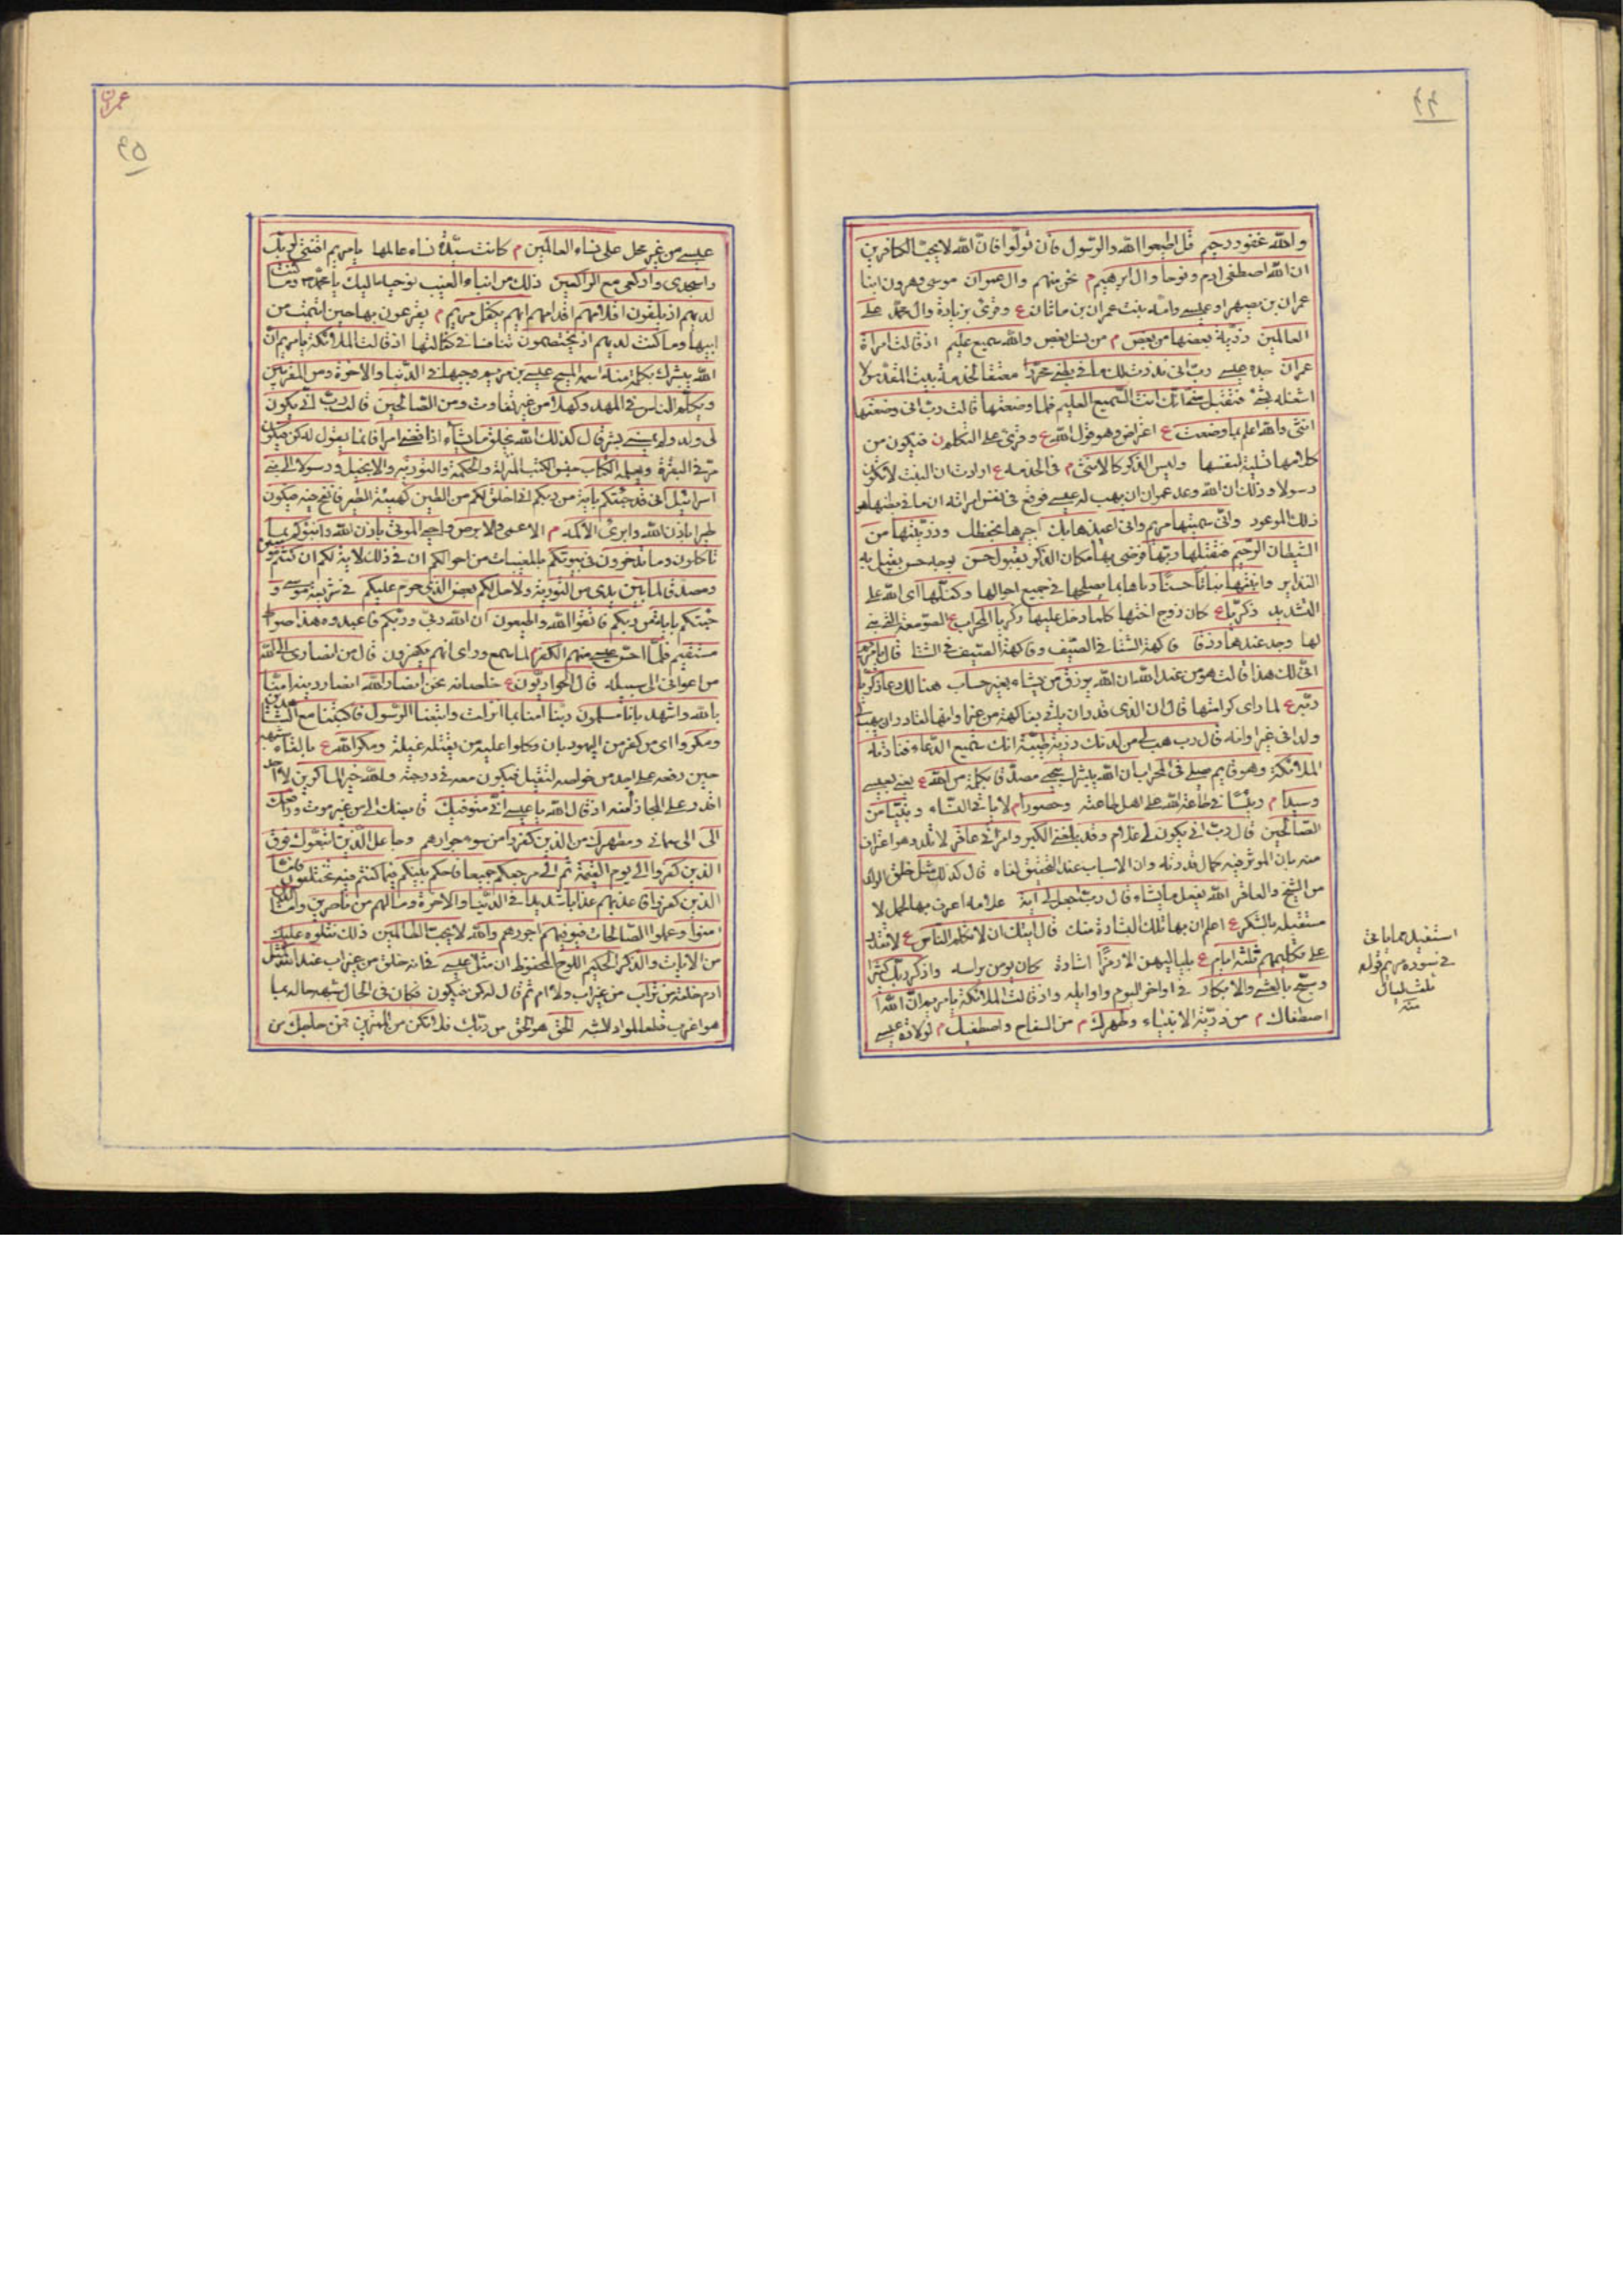 ٤٤
والله غفور رحيم قل اطيعوا الله والرسول فان تولوا فان الله لا يحب الكافرين
ان الله اصطفى ادم ونوحا وال ابرهيم م نحن منهم وال عمران موسى وهرون ابنا
عمران بن يصهر او عيسى وامه بنت عمران بن ماثان ع وقرئ بزيادة وال محمد على
العالمين ذرية بعضها من بعض م من نسل بعض والله سميع عليم اذ قالت امراة
عمران جدة عيسى رب انى نذرت لك ما فى بطنى محررا معتقا لخدمة بيت المقدس لا
اشغله بشئ فتقبل منى انك انت السميع العليم فلما وضعتها قالت رب انى وضعتها
انثى والله اعلم بما وضعت ع اعتراض وهو قول الله ع وقرئ على التكلم ن فيكون من
كلامها تسلية لنفسها وليس الذكر كالانثى م فى الخدمة ع اوردت ان البنت لا تكون
رسولا وذلك ان الله وعد عمران ان يهب له عيسى فوقع فى نفس امراته ان ما فى بطنها هو
ذلك الموعود وانى سميتها مريم وانى اعيذها بك اجرها بحفظك وذريتها من
الشيطان الرجيم فتقبلها ربها فرضى بها مكان الذكر بقبول حسن بوجه حسن يقبل به
النذاير وانبتها نباتا حسنا رباها بما يصلحها فى جميع احوالها وكفلها اى الله على
التشديد زكريا ع كان زوج اختها كلما دخل عليها زكريا المحراب ع الصومعة التى بنى
لها وجد عندها رزقا فاكهة الشتا فى الصيف وفاكهة الصيف فى الشتا قال يا مريم
انى لك هذا قالت هو من عند الله ان الله يرزق من يشاء بغير حساب هنالك دعا زكريا
ربه ع لما راى كرامتها قال ان الذى قدر ان ياتى بفاكهة من غير اوانها لقادر ان يهب لى
ولدا فى غير اوانه قال رب هب لى من لدنك ذرية طيبة انك سميع الدعاء فنادته
الملائكة وهو قايم يصلى فى المحراب ان الله يبشرك بيحيى مصدقا بكلمة من الله ع يعنى بعيسى
وسيدا م رئيسا فى طاعة الله على اهل طاعته وحصورا م لا ياتى النساء ونبيا من
الصالحين قال رب انى يكون لى غلام وقد بلغنى الكبر وامراتى عاقر لا تلد وهو اعتراف
منه بان الموثر فيه كمال قدرته وان الاسباب عند التحقيق لغاه قال كذلك مثل خلق الولد
من الشيخ والعاقر الله يفعل ما يشاء قال رب اجعل لى اية علامة اعرف بها الحمل لا
ستقبله بالشكر ع اعلم ان بها تلك البشارة منك قال ايتك ان لا تكلم الناس ع لا تقدر
على تكليمهم ثلثة ايام ع بلياليهن الا رمزا اشارة كان يومى براسه واذكر ربك كثيرا
وسبح بالعشى والابكار فى اواخر اليوم واوايله واذ قالت الملائكة يا مريم ان الله
اصطفاك م من ذرية الانبياء وطهرك م من السفاح واصطفيك م لولادة عيسى
استفيد هما باتى
فى سورة مريم قوله
ثلث ليال
منه
عمران
٤٥
عيسى من غير محل على نساء العالمين م كانت سيدة نساء عالمها يا مريم اقنتى لربك
واسجدى واركعى مع الراكعين ذلك من انباء الغيب نوحيها اليك يا محمد ص وما كنت
لديهم اذ يلقون اقلامهم اقدامهم ايهم يكفل مريم م يقرعون بها حين ايتمت من
ابيها وما كنت لديهم اذ يختصمون تنافسا فى كفالتها اذ قالت الملائكة يا مريم ان
الله يبشرك بكلمة منه اسمه المسيح عيسى بن مريم وجيها فى الدنيا والاخرة ومن المقربين
ويكلم الناس فى المهد وكهلا من غير تفاوت ومن الصالحين قالت رب انى يكون
لى ولد ولم يمسسنى بشر قال كذلك الله يخلق ما يشاء اذا قضى امرا فانما يقول له كن فيكون
مر فى البقرة ويعلمه الكتاب جنس الكتب المنزلة والحكمة والتورية والانجيل ورسولا الى بنى
اسرائيل انى قد جئتكم باية من ربكم انى اخلق لكم من الطين كهيئة الطير فانفخ فيه فيكون
طيرا باذن الله وابرئ الاكمه م الاعمى والابرص واحيى الموتى باذن الله وانبئوكم بما
تاكلون وما تدخرون فى بيوتكم بالمغيبات من احوالكم ان فى ذلك لاية لكم ان كنتم مؤمنين
ومصدقا لما بين يدى من التورية ولاحل لكم بعض الذى حرم عليكم فى شريعة موسى و
جئتكم باية من ربكم فاتقوا الله واطيعون ان الله ربى وربكم فاعبدوه هذا صراط
مستقيم فلما احس عيسى منهم الكفر م لما سمع وراى انهم يكفرون قال من انصارى الى الله
من اعوانى الى سبيله قال الحواريون ع خلصانه نحن انصار الله انصار دينه امنا
بالله واشهد بانا مسلمون ربنا امنا بما انزلت واتبعنا الرسول فاكتبنا مع الشاهدين
ومكروا اى من كفر من اليهود بان وكلوا عليه من يقتله غيلة ومكر الله ع بالقاء شبهه
حين رفعه على احد من خواصه ليقتل فيكون معه فى درجته والله خير الماكرين لانه
اقدر على المجازاة منه اذ قال الله يا عيسى انى متوفيك قابضك الى من غير موت ورافعك
الى الى سمائى ومطهرك من الذين كفروا من سوء جوارهم وجاعل الذين اتبعوك فوق
الذين كفروا الى يوم القيمة ثم الى مرجعكم جميعا فاحكم بينكم فيما كنتم فيه تختلفون فاما
الذين كفروا فاعذبهم عذابا شديدا فى الدنيا والاخرة وما لهم من ناصرين واما الذين
امنوا وعملوا الصالحات فيوفيهم اجورهم والله لا يحب الظالمين ذلك نتلوه عليك
من الايات والذكر الحكيم اللوح المحفوظ ان مثل عيسى فى انه خلق من غير اب عند الله كمثل
ادم خلقه من تراب من غير اب ولا ام ثم قال له كن فيكون فكان فى الحال شبه حاله بما
هو اغرب قطعا لمواد الشبه الحق هو الحق من ربك فلا تكن من الممترين فمن حاجك من